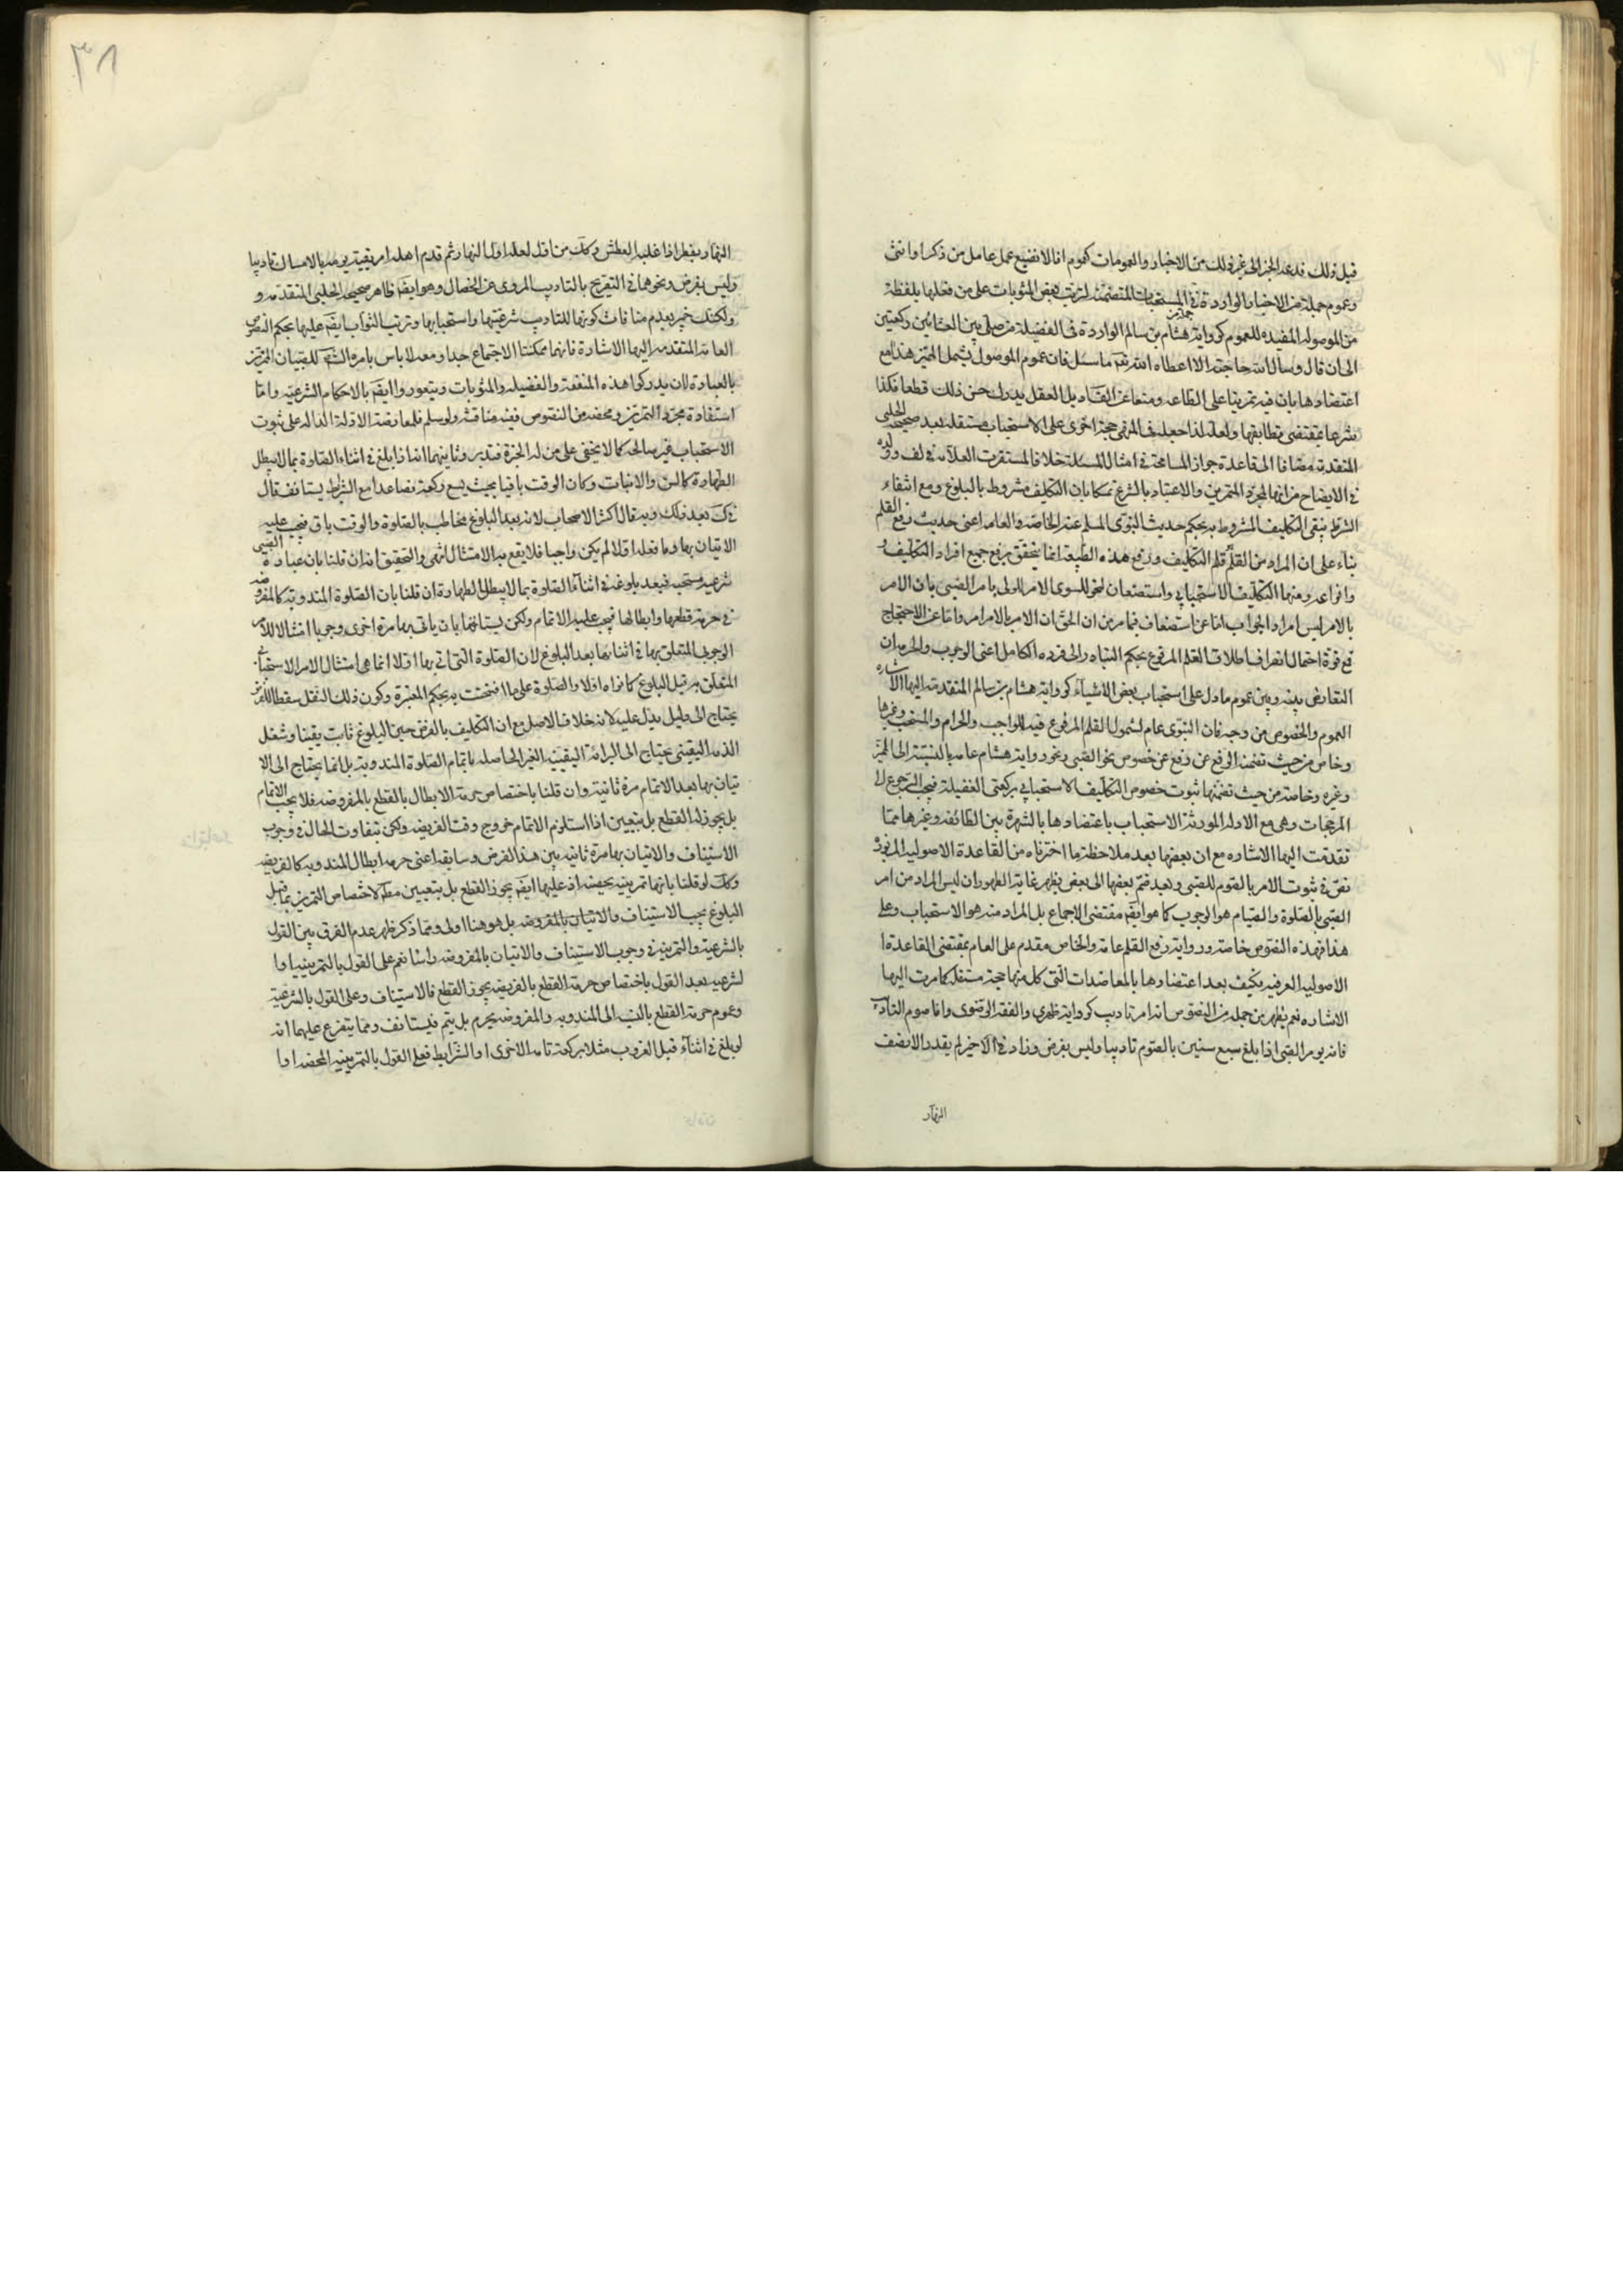 قبل ذلك فدعه الخبر الى غير ذلك من الاخبار والعمومات كعموم انا لا نضيع عمل عامل من ذكر او انثى
وعموم جملة من الاخبار الواردة في المستحبات المتضمنة لترتب بعض المثوبات على من فعلها بلفظة
من الموصولة المفيدة للعموم كرواية هشام بن سالم الواردة في الغفيلة من صلى بين العشائين ركعتين
الى ان قال وسال الله حاجته الا اعطاه الله تعـ ما سئل فان عموم الموصول يشمل المميز هذا مع
اعتضادها بان فيه تمرينا على الطاعه ومنعا عن الفساد بل العقل يدرك حسن ذلك قطعا فكذا
شرعا بمقتضى تطابقها ولعله لذا جعله في المرتضى حجة اخرى على الاستحباب مستقلة بعد صحيحة الحلبى
المتقدمة مضافا الى قاعدة جواز المسامحة في امثال المسئلة خلافا لمستقرب العلامه في لف وولده
في الايضاح من انها لمجرد التمرين والاعتياد بالشرع تمسكا بان التكليف مشروط بالبلوغ ومع انتفاء
الشرط ينتفى التكليف المشروط به بحكم حديث النبوى المسلم عند الخاصة والعامه اعنى حديث رفع القلم
بناء على ان المراد من القلم قلم التكليف ورفع هذه الطبيعة انما يتحقق برفع جميع افراد التكليف و
وانواعه ومنها التكليف الاستحبابى واستضعاف لتحول سوى الامر الولى بامر الصبى بان الامر
بالامر ليس امرا والجواب اما عن استضعاف فيما مر من ان الحق ان الامر بالامر امر واما عن الاحتجاج
فمع قوة احتمال انصراف اطلاق القلم المرفوع بحكم التبادر الى فرده الكامل اعنى الوجوب والحرمة ان
التعارض بينه وبين عموم ما دل على استحباب بعض الاشياء كرواية هشام بن سالم المتقدمة اليها الاشاره
العموم والخصوص من وجه فان النبوى عام لشمول القلم المرفوع فيه للواجب والحرام والمستحب وغيرها
وخاص من حيث تضمنه الرفع عن رفع عن خصوص نحو الصبى ونحو رواية هشام عامه بالنسبة الى المميز
وغيره وخاصة من حيث تضمنها ثبوت خصوص التكليف الاستحبابى بركعتى الغفيلة فيجب الرجوع الى
المرجحات وهى مع الادله المورثة الاستحباب باعتضادها بالشهرة بين الطائفه وغيرها مما
تقدمت اليها الاشاره مع ان بعضها بعد ملاحظة ما اخترناه من القاعدة الاصوليه المزبورة
نص في ثبوت الامر بالصوم للصبى وبعد ضم بعضها الى بعض يظهر غاية الظهور ان ليس المراد من امر
الصبى بالصلوة والصيام هو الوجوب كما هو ايضا مقتضى الاجماع بل المراد منه هو الاستحباب وعلى
هذا فهذه النصوص خاصة ورواية رفع القلم عامة والخاص مقدم على العام بمقتضى القاعدة ا
الاصوليه العرفيه فكيف بعد اعتضادها بالمعاضدات التى كل منها حجة مستقلة كما مرت اليها
الاشاره نعم يظهر من جمله من النصوص انه امر تاديب كرواية ظهرى والفقه الرضوى واما صوم التاديب
فانه يومر الصبى اذا بلغ سبع سنين بالصوم تاديبا وليس بفرض وزاد في الاخير لم يقدر الا نصف
النهار
٣٨
النهار يفطر اذا غلبه العطش وكك من اكل لعله اول النهار ثم قدم اهله امر بقية يومه بالامساك تاديبا
وليس بفرض ونحوها في التصريح بالتاديب المروى عن الخصال وهو ايضا ظاهر صحيحه الحلبى المتقدمه و
ولكنك خبير بعدم منافات كونها للتاديب شرعيتها واستحبابها وترتب الثواب ايضا عليها بحكم النصوص
العامة المتقدمه اليها الاشارة فانهما ممكنتا الاجتماع جدا ومعه لا باس بامره الشـ للصبيان المميز
بالعبادة لان يدركوا هذه المنفعة والفضيلة والمثوبات ويتعودوا ايضا بالاحكام الشرعيه واما
استفادة مجرد التمرين ومحضه من النصوص ففيه مناقشة ولو سلم فلمعارضة الادلة الدالة على ثبوت
الاستحباب غير صالحه كما لا يخفى على من له الخبرة فتدبر وثانيهما انه اذا بلغ في اثناء الصلوة بما لا يبطل
الطهارة كالسن والانبات وكان الوقت باقيا بحيث يسع ركعة فصاعدا مع الشرايط يستانف قال
في ك بعد ذلك وبه قال اكثر الاصحاب لانه بعد البلوغ مخاطب بالصلوة والوقت باق فيجب عليه
الاتيان بها وما فعله اولا لم يكن واجبا فلا يقع به الامتثال انتهى والتحقيق انه ان قلنا بان عبادة الصبى
شرعيه مستحبه فبعد بلوغه في اثناء الصلوة بما لا يبطل الطهارة ان قلنا بان الصلوة المندوبة كالمفروضه
في حرمة قطعها وابطالها فيجب عليه الاتمام ولكن يستانفها بان ياتى بها مرة اخرى وجوبا امتثالا للامر
الوجوبى المتعلق بها في اثنائها بعد البلوغ لان الصلوة التى اتى بها اولا انما هى امتثال الامر الاستحبابى
المتعلق به قبل البلوغ كما نواه اولا والصلوة على ما افتتحت به بحكم المعتبرة وكون ذلك النفل مسقطا للفرض
يحتاج الى دليل يدل عليه لانه خلاف الاصل مع ان التكليف بالفرض حين البلوغ ثابت يقينا وشغل
الذمه اليقينى يحتاج الى البرائة اليقينيه الغير الحاصله باتمام الصلوة المندوبه بل انما يحتاج الى الا
تيان بها بعد الاتمام مرة ثانية وان قلنا باختصاص حرمة الابطال بالقطع بالمفروضه فلا يجب الاتمام
بل يجوز له القطع بل يتعين اذا استلزم الاتمام خروج وقت الفريضه ولكن تتفاوت الحال في وجوب
الاستيناف والاتيان بها مرة ثانيه بين هذا الفرض وسابقه اعنى حرمه ابطال المندوبه كالفريضه
وكك لو قلنا بانها تمرينيه محضه اذ عليها ايضا يجوز القطع بل يتعيين مطـ لاختصاص التمرين بما قبل
البلوغ فيجب الاستيناف والاتيان بالمفروضه بل هو هنا اولى ومما ذكر ظهر عدم الفرق بين القول
بالشرعية والتمرينية في وجوب الاستيناف والاتيان بالمفروضه راسا نعم على القول بالتمرينيه او ا
لشرعيه بعد القول باختصاص حرمة القطع بالفريضه يجوز القطع فالاستيناف وعلى القول بالشرعية
وعموم حرمة القطع بالنسبه الى المندوبه والمفروضه يحرم بل يتم فيستانف ومما يتفرع عليهما انه
لو بلغ في اثناء قبل الغروب مثلا بركعة تامه الاخرى او الشرايط فعلى القول بالتمرينيه المحضه او ا